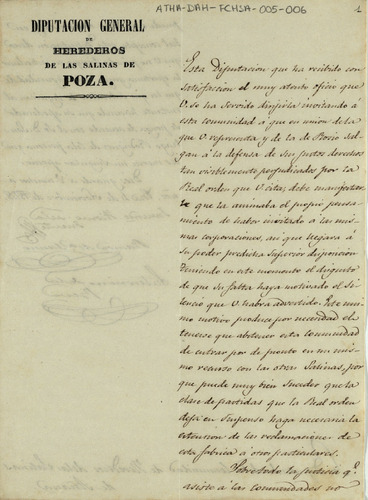 ATHA-DAH-FCHSA-005-006
DIPUTACION GENERAL
DE
HEREDEROS
DE LAS SALINAS DE
POZA.
Esta Diputacion que ha recibido con
satisfaccion el muy atento oficio que
V. se ha servido dirigirla invitando á
esta comunidad á que en union de la
que V. representa y de la de Rosio sal-
gan á la defensa de sus justos derechos
tan visiblemente perjudicados por la
Real orden que V. cita; debe manifestar-
le que la animaba el propio pensa-
miento de haber invitado á las mis-
mas corporaciones, asi que llegara á
su poder predicha Superior disposicion
teniendo en este momento el disgusto
de que su falta haya motivado el si-
lencio que V. habra advertido. Este mis-
mo motivo produce por necesidad el
tenerse que abstener esta comunidad
de entrar por de pronto en un mis-
mo recurso con las otras Salinas, por
que puede muy bien suceder que la
clase de partidas que la Real orden
deja en suspenso haga necesaria la
extension de las reclamaciones de
esta fabrica á otros particulares.
Sobre todo la justicia q.e
asiste á las comunidades no